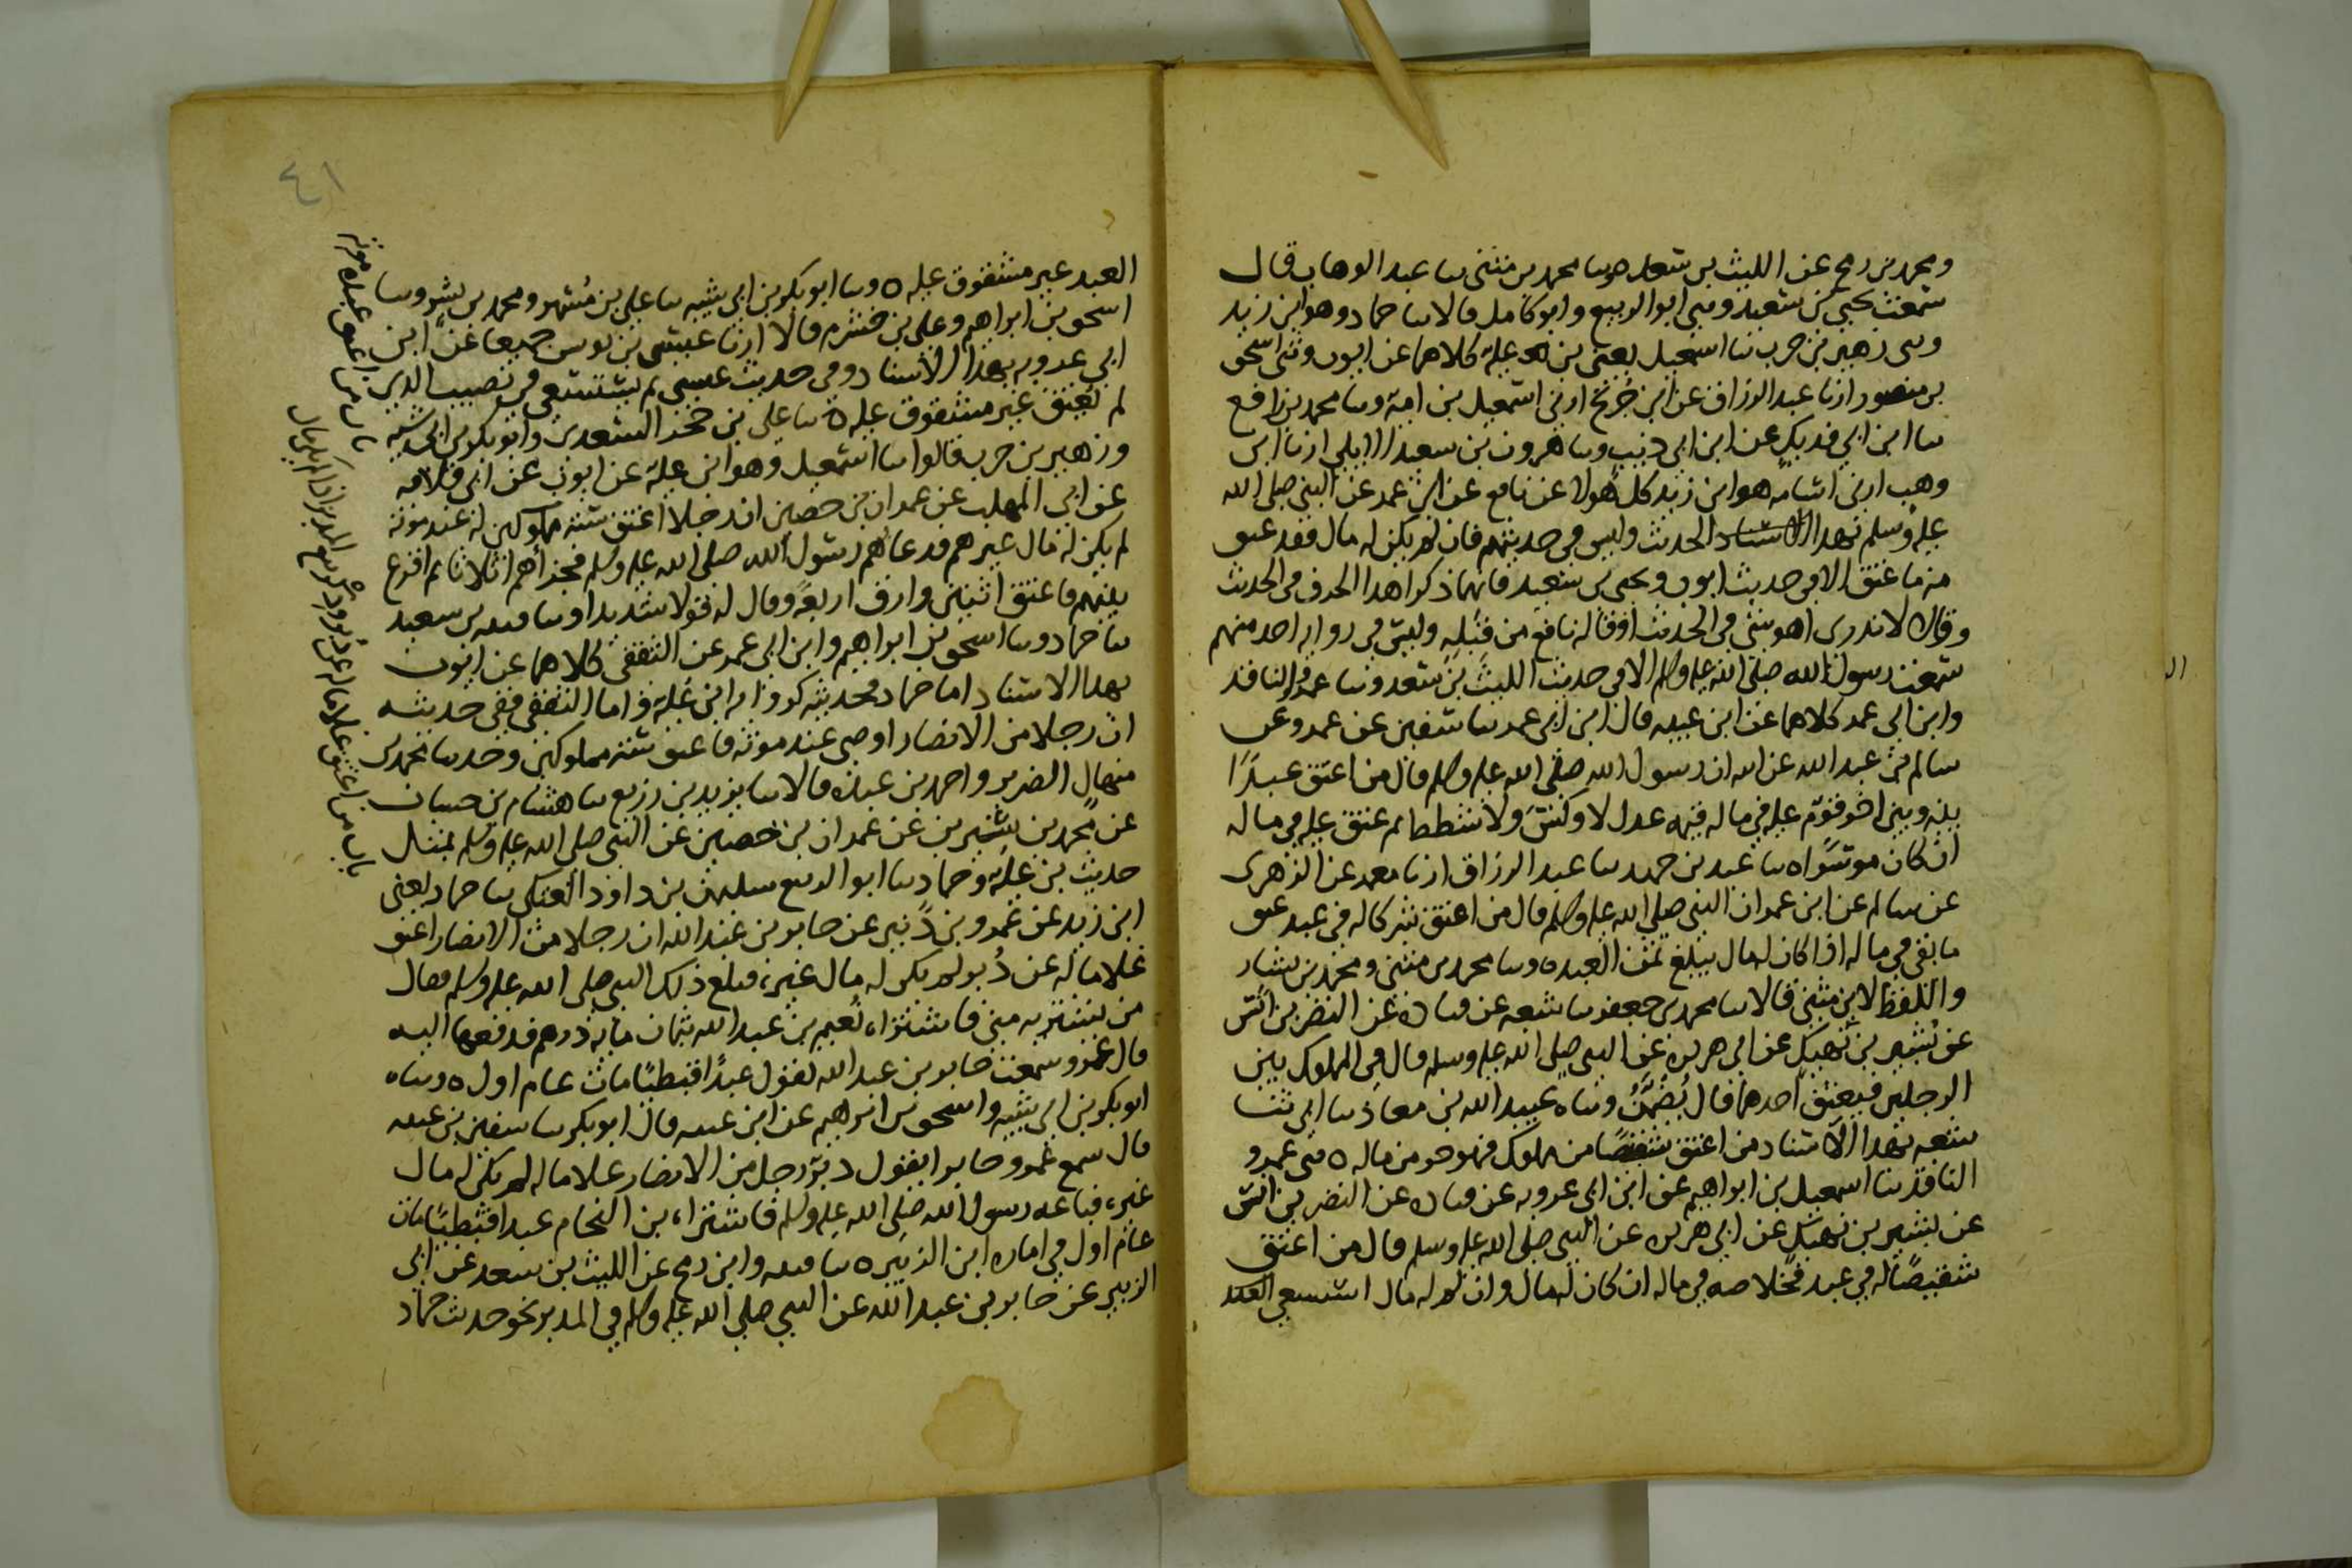 ومحمد بن رمح عن الليث بن سعد ح وسا محمد بن مثنى سا عبد الوهاب قال
سمعت يحيى بن سعيد وسى ابو الربيع وابو كامل قالا سا حماد وهو ابن زيد
وسى زهير بن حرب سا اسمعيل يعنى بن علية كلاهما عن ايوب وثنى اسحق
بن منصور ارنا عبد الرزاق عن ابن جريج ارنى اسمعيل بن امية وسا محمد بن رافع
سا ابن ابي فديك عن ابن ابي ذيب وسا هرون بن سعيد الايلي ارنا ابن
وهب ارنى اسامه هو ابن زيد كل هولا عن نافع عن ابن عمر عن النبى صلى الله
عليه وسلم بهذا الحديث وليس في حديثهم فان لم يكن له مال فقد عتق
منه ما عتق الا في حديث ايوب ويحيى بن سعيد فانهما ذكرا هذا الحرف في الحديث
وقالا لا ندرى اهو شى في الحديث او قاله نافع من قبله وليس في رواية احد منهم
سمعت رسول الله صلى الله عليه وسلم الا في حديث الليث بن سعد وسا عمرو الناقد
وابن ابي عمر كلاهما عن ابن عيينه قال ابن ابي عمر سا سفين عن عمرو عن
سالم بن عبد الله عن ابيه ان رسول الله صلى الله عليه وسلم قال من اعتق عبدًا
بينه وبين اخر قوّم عليه في ماله قيمه عدل لا وكس ولا شطط ثم عتق عليه في ماله
ان كان موسرًا ه سا عبد بن حميد سا عبد الرزاق ارنا معمر عن الزهرى
عن سالم عن ابن عمر ان النبى صلى الله عليه وسلم قال من اعتق شركا له في عبد عتق
ما بقى في ماله اذا كان له مال يبلغ ثمن العبد ه وسا محمد بن مثنى ومحمد بن بشار
واللفظ لابن مثنى قالا سا محمد بن جعفر سا شعبه عن قتاده عن النضر بن انس
عن بشير بن نهيك عن ابي هريره عن النبى صلى الله عليه وسلم قال في المملوك بين
الرجلين فيعتق احدهما قال يُضَمَّنُ وساه عبيد الله بن معاذ سا ابي ثنا
شعبه بهذا الاسناد من اعتق شقصًا من مملوك فهو حر من ماله ه سى عمرو
الناقد سا اسمعيل بن ابراهيم عن ابن ابي عروبه عن قتاده عن النضر بن انس
عن بشير بن نهيك عن ابي هريره عن النبى صلى الله عليه وسلم قال من اعتق
شقيصًا له في عبد فخلاصه في ماله ان كان له مال وان لم له مال استسعي العبد
٤١
العبد غير مشقوق عليه ه وسا ابو بكر بن ابي شيبه سا علي بن مُسهر ومحمد بن بشر وسا
اسحق بن ابراهيم وعلي بن خشرم قالا ارنا عيسى بن يونس جميعا عن ابن
ابي عروبه بهذا الاسناد وفي حديث عيسى ثم يستسعى في نصيب الذى
لم يعتق غير مشقوق عليه ه سا علي بن حجر السعدى وابو بكر بن ابي شيبه
وزهير بن حرب قالوا سا اسمعيل وهو ابن علية عن ايوب عن ابي قلابه
عن ابي المهلب عن عمران بن حصين ان رجلا اعتق سته مملوكين له عند موته
لم يكن له مال غيرهم فدعاهم رسول الله صلى الله عليه وسلم فجزأهم اثلاثا ثم اقرع
بينهم فاعتق اثنين وارق اربعة وقال له قولا شديدا وسا قتيبه بن سعيد
سا حماد وسا اسحق بن ابراهيم وابن ابي عمر عن الثقفى كلاهما عن ايوب
بهذا الاسناد اما حماد فحديثه كرواية ابن علية واما الثقفى ففى حديثه
ان رجلا من الانصار اوصى عند موته فاعتق سته مملوكين وحدثنا محمد بن
منهال الضرير واحمد بن عبده قالا سا يزيد بن زريع سا هشام بن حسان
عن محمد بن سيرين عن عمران بن حصين عن النبى صلى الله عليه وسلم بمثل
حديث بن علية وحماد سا ابو الربيع سليمن بن داود العتكى سا حماد يعنى
ابن زيد عن عمرو بن دينر عن جابر بن عبد الله ان رجلا من الانصار اعتق
غلاما له عن دُبر لم يكن له مال غيره فبلغ ذلك النبى صلى الله عليه وسلم فقال
من يشتريه منى فاشتراه نعيم بن عبد الله بثمان مايه درهم فدفعها اليه
قال عمرو سمعت جابر بن عبد الله يقول عبدًا قبطيًا مات عام اول ه وساه
ابو بكر بن ابي شيبه واسحق بن ابراهيم عن ابن عيينه قال ابو بكر سا سفين بن عيينه
قال سمع عمرو جابرا يقول دبّر رجل من الانصار غلاما له لم يكن له مال
غيره فباعه رسول الله صلى الله عليه وسلم فاشتراه بن النحام عبدا قبطيًا مات
عام اول في اماره ابن الزبير ه سا قتيبه وابن رمح عن الليث بن سعد عن ابي
الزبير عن جابر بن عبد الله عن النبى صلى الله عليه وسلم في المدبر نحو حديث حماد
باب من اعتق عبيده عند موته
باب من اعتق غلاما له عن دُبر وذكر بيع المدبر اذا لم يكن له مال